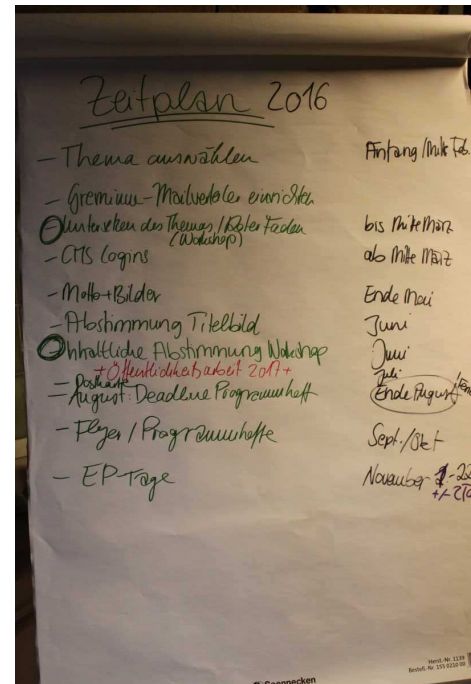 Zeitplan 2016
- Thema auswählen Anfang/Mitte Feb.
- Gremium-Mailverteiler einrichten
Untersetzen des Themas / Roter Faden bis Mitte März
(Workshop)
- CMS Logins ab Mitte März
- Motto+Bilder Ende Mai
- Abstimmung Titelbild Juni
Inhaltliche Abstimmung Workshop Juni
+ Öffentlichkeitsarbeit 2017 +
- Postkarte Juli
- August: Deadline Programmheft Ende August
- Flyer / Programmhefte Sept./Okt
- EP-Tage November
Herst.-Nr. 1139
Bestell.-Nr. 155 0210 00
Soennecken